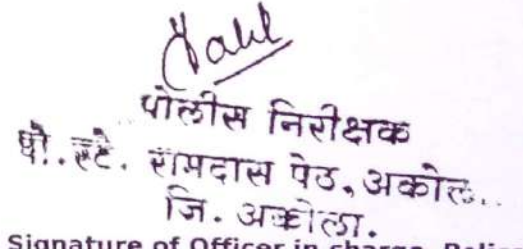 पोलीस निरीक्षक
पो. स्टे. रामदास पेठ, अकोला.
जि. अकोला.
Signature of Officer in charge, Police